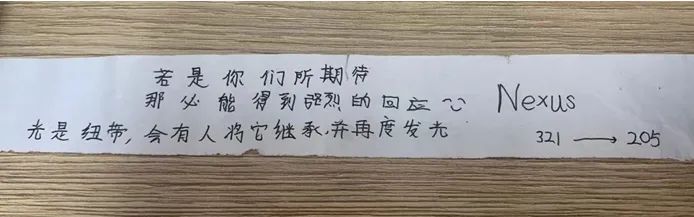 若是你们所期待
那必能得到强烈的回应~
Nexus
光是纽带,会有人将它继承.并再度发光
321 → 205